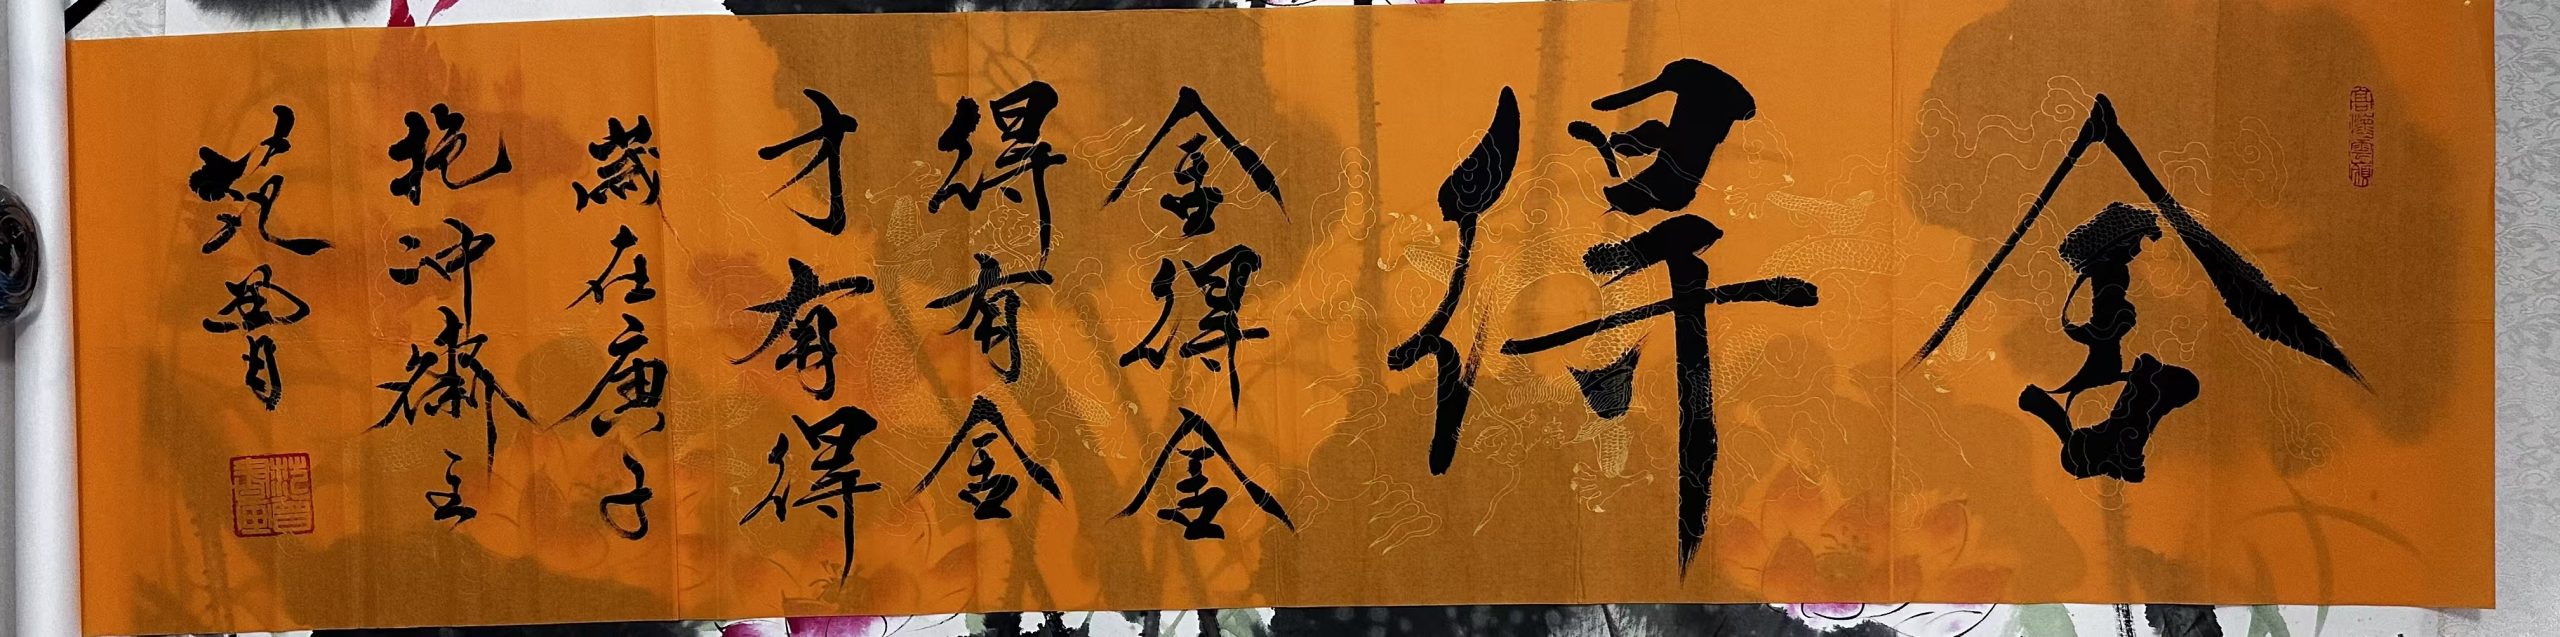 舍得
舍得舍
得有舍
才有得
歲在庚子
抱沖齋主
范曾